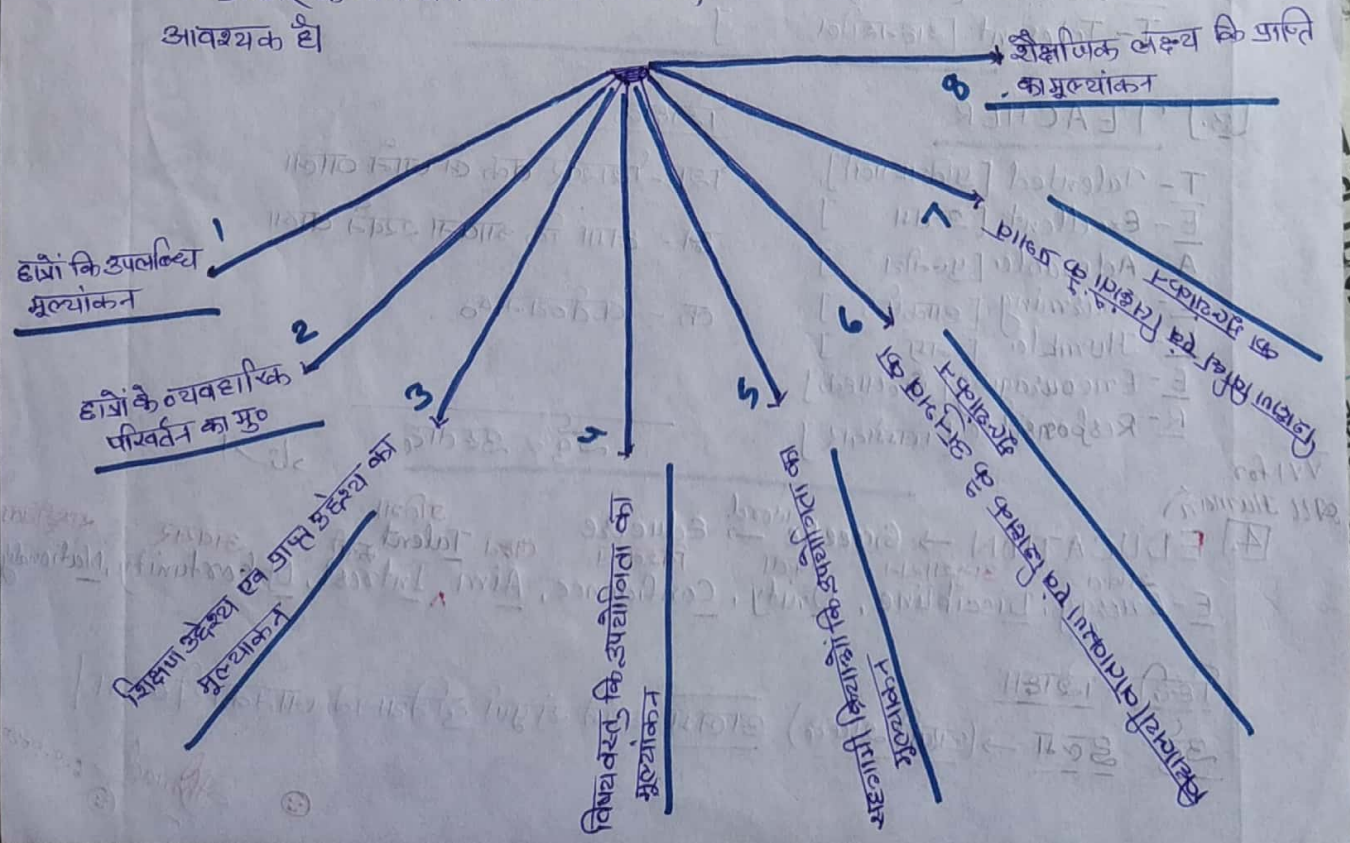 आवश्यक है।
1
छात्रों कि उपलब्धि
मूल्यांकन
2
छात्रों के व्यवहारिक
परिवर्तन का मु०
3
शिक्षण उद्देश्य एवं प्राप्त उद्देश्य का
मूल्यांकन
4
विषयवस्तु कि उपयोगिता का
मूल्यांकन
5
कि उपयोगिता का
मूल्यांकन
6
विद्यालयी वातावरण एवं शिक्षक के अनुभव का
मूल्यांकन
7
शिक्षण विधि एवं के प्रभाव
का मूल्यांकन
8
शैक्षणिक लक्ष्य कि प्राप्ति
का मूल्यांकन